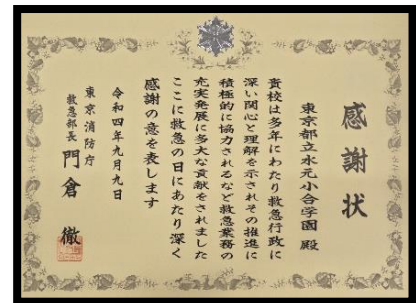 感謝状
東京都立水元小合学園 殿
貴校は多年にわたり救急行政に
深い関心と理解を示されその推進に
積極的に協力されるなど救急業務の
充実発展に多大な貢献をされました
ここに救急の日にあたり深く
感謝の意を表します
令和四年九月九日
東京消防庁
救急部長 門倉 徹